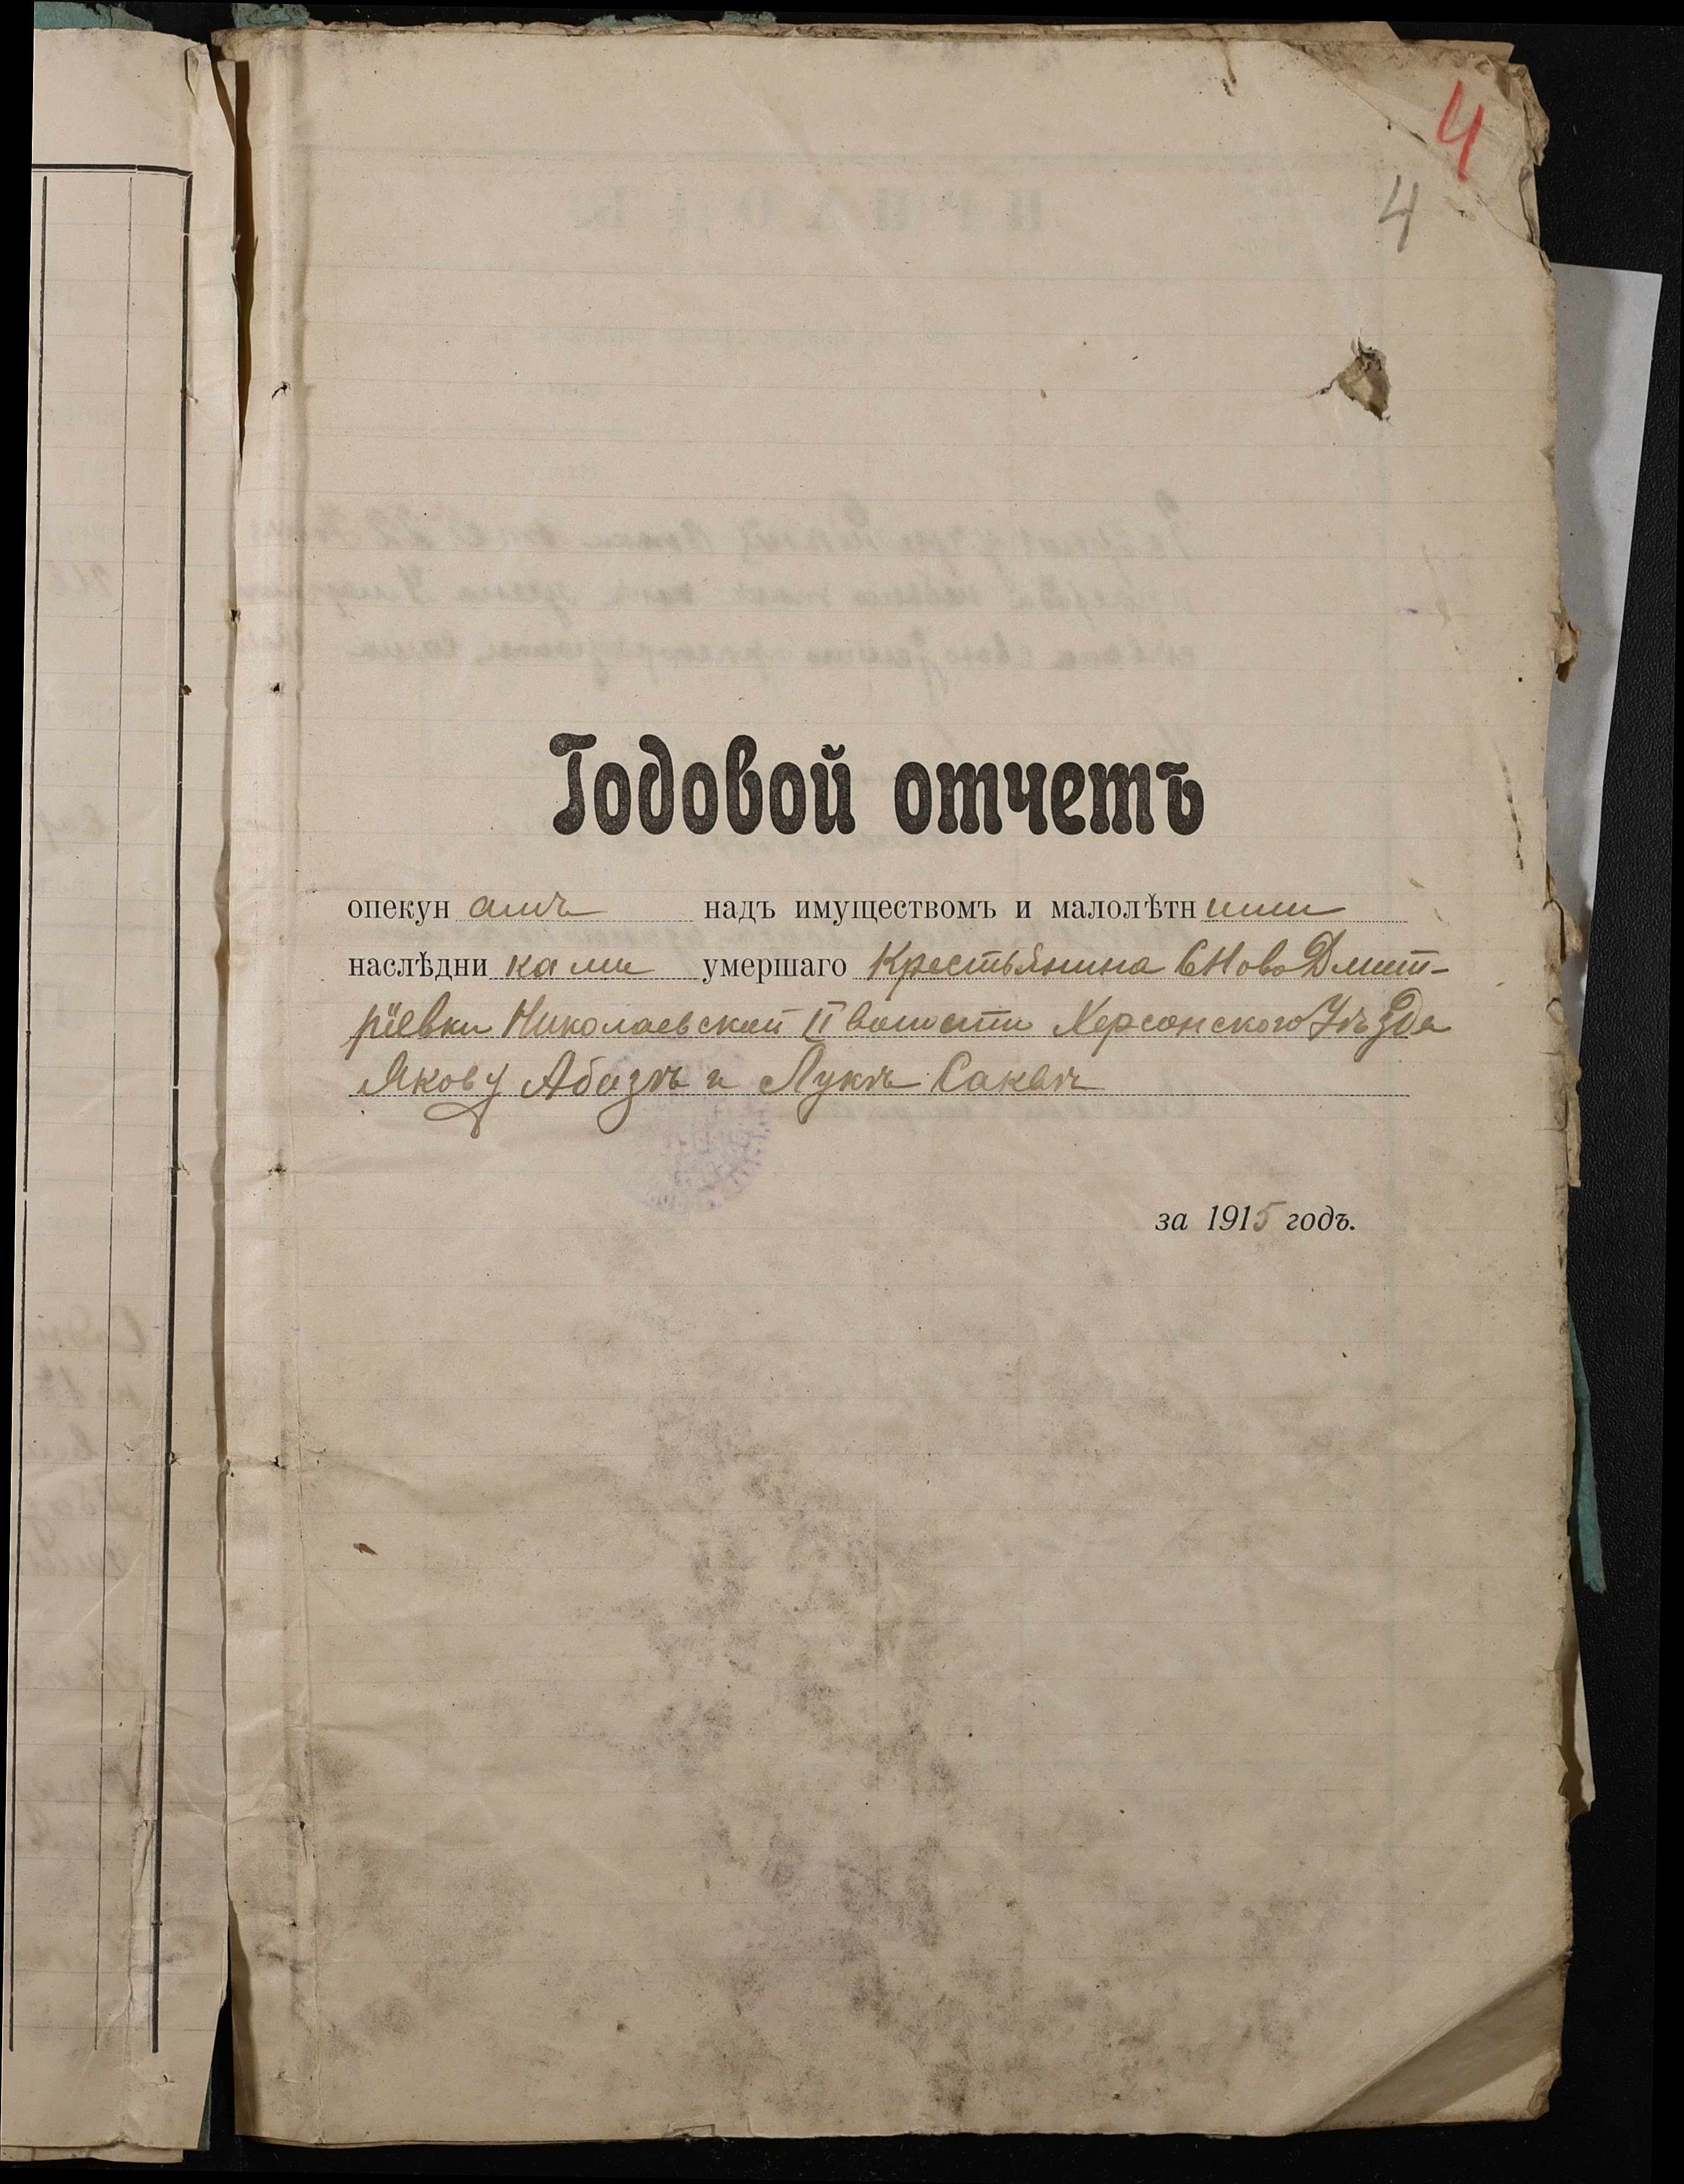 4
4
Годовой отчетъ
опекун амъ надъ имуществомъ и малолѣтн ими
наслѣдни ками умершаго Крестьянина С Ново Дмит-
ріевки Николаевской II волости Херсонского Уѣзда
Якову Абазѣ и Лукѣ
за 1915 годъ.